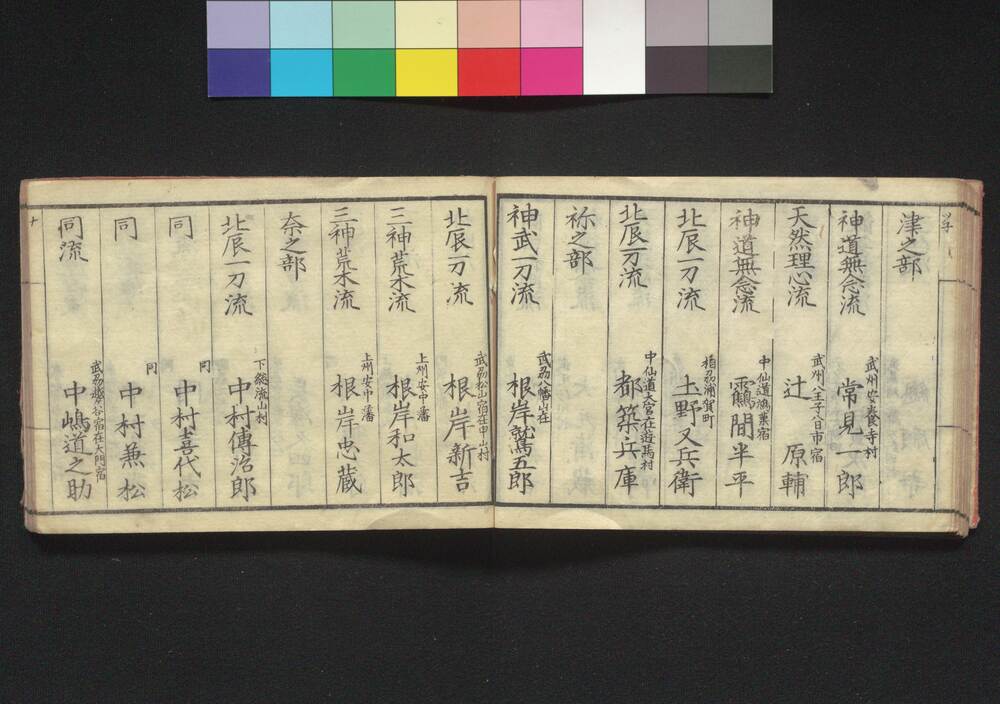 津之部
神道無念流 武州安養寺村 常見一郎
天然理心流 武州八王子八日市宿 辻原輔
神道無念流 中仙道鴻巣宿 靍間半平
北辰一刀流 相刕浦賀町 土野又兵衛
北辰一刀流 中仙道大宮在遊馬村 都築兵庫
祢之部
神武一刀流 武刕八幡山在 根岸鷲五郎
北辰一刀流 武刕松山宿在中山村 根岸新吉
三神荒木流 上州安中藩 根岸和太郎
三神荒木流 上州安中藩 根岸忠蔵
奈之部
北辰一刀流 下総流山村 中村傳治郎
同 同 中村喜代松
同 同 中村兼松
同流 武刕越谷宿在大門宿 中嶋道之助
十